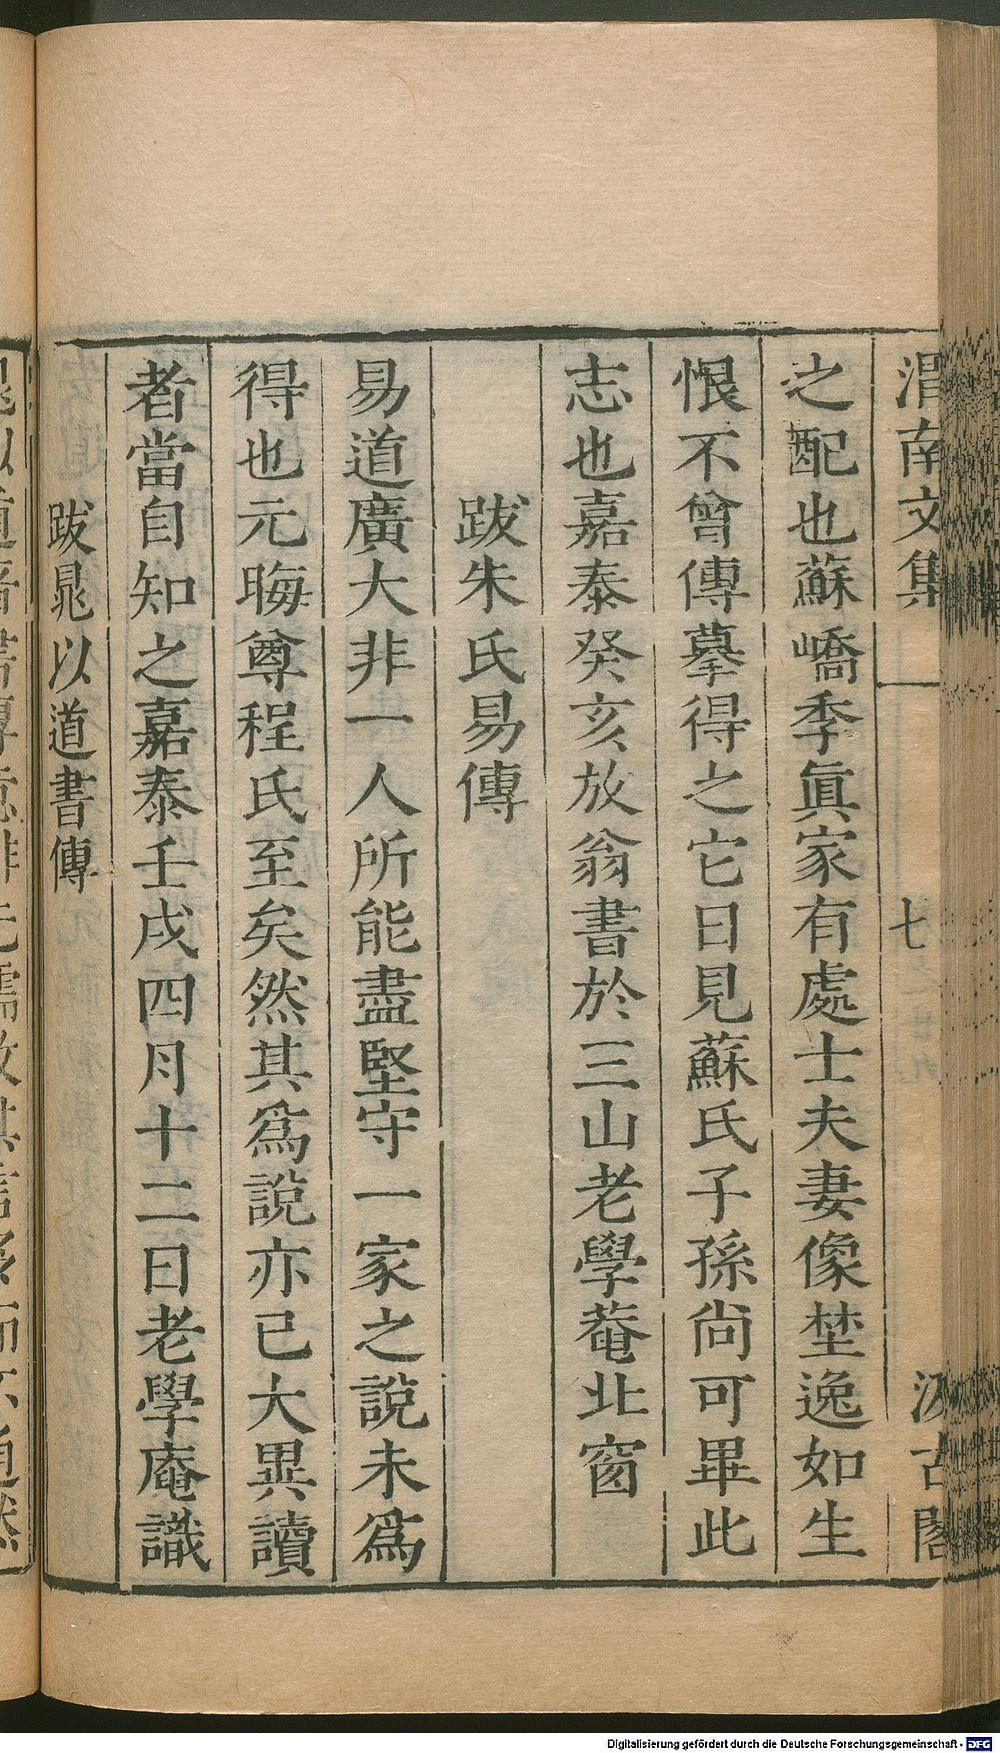 渭南文集
七
汲古閣
之配也蘇嶠季眞家有處士夫妻像埜逸如生
恨不曾傳摹得之它日見蘇氏子孫尚可畢此
志也嘉泰癸亥放翁書於三山老學菴北窗
跋朱氏易傳
易道廣大非一人所能盡堅守一家之說未爲
得也元晦尊程氏至矣然其爲說亦已大異讀
者當自知之嘉泰壬戌四月十二日老學庵識
跋晁以道書傳
Digitalisierung gefördert durch die Deutsche Forschungsgemeinschaft - DFG